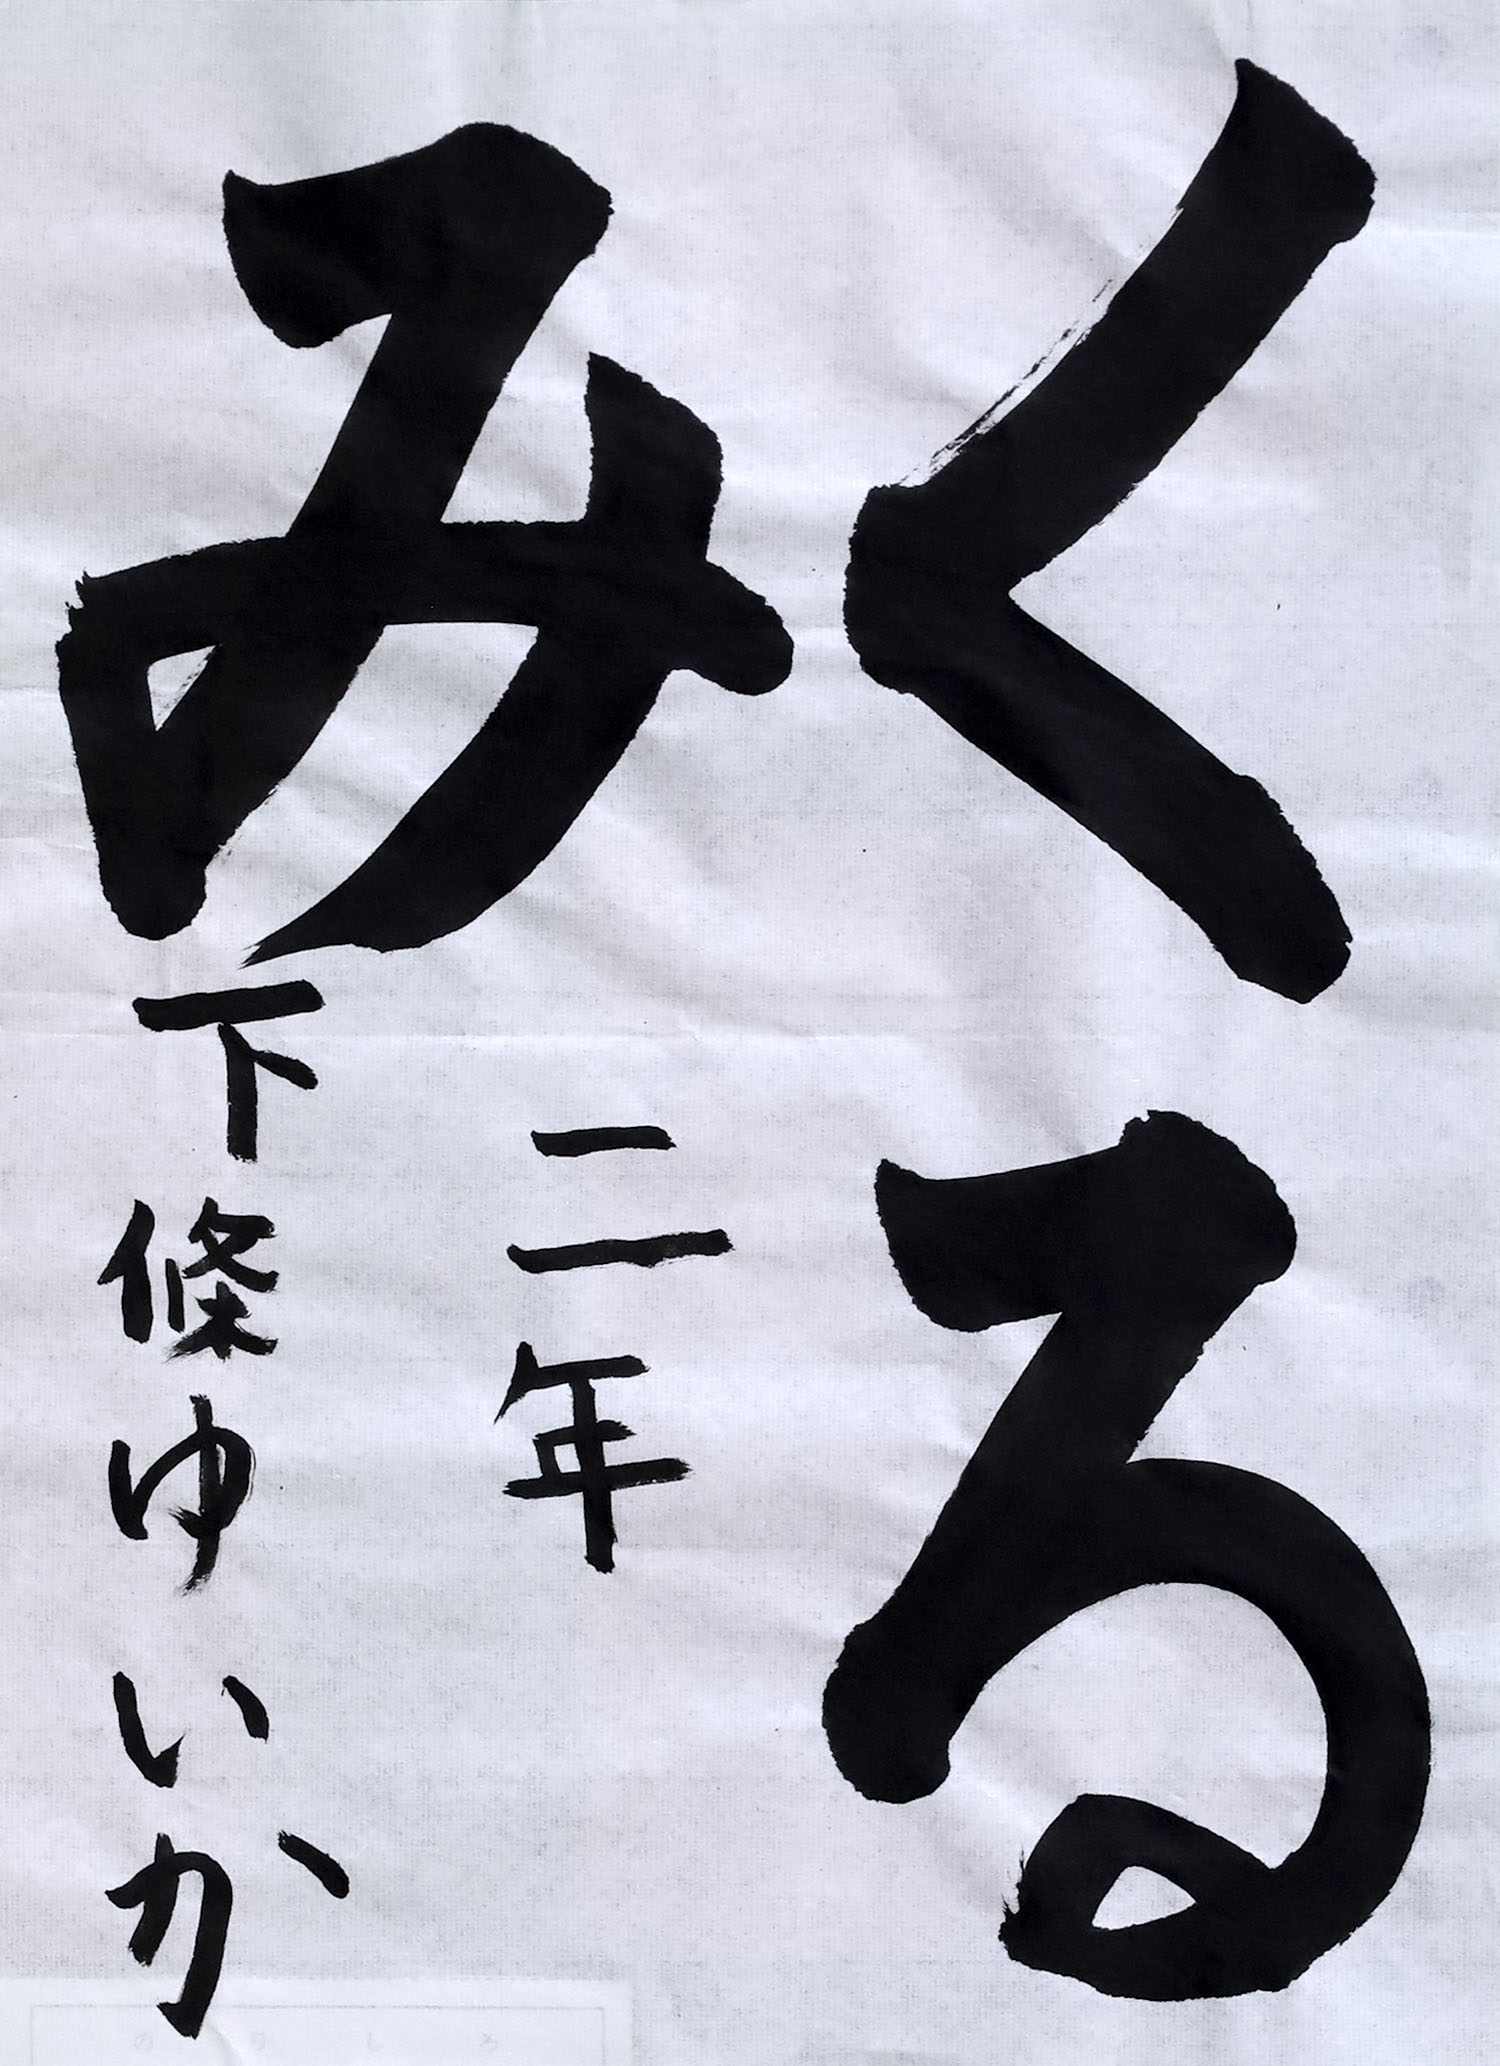 くる
み
二年
下條ゆいか